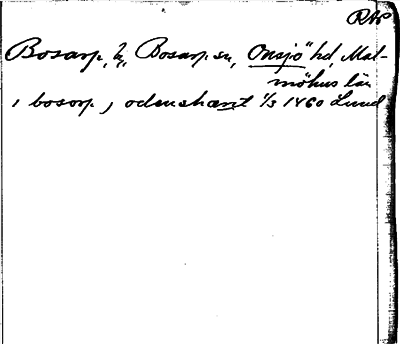 RAP
Bosarp, Bosarp sn, Onsjö hd, Mal-
möhus län
i bosorp, odensharit 1/3 1460 Lund